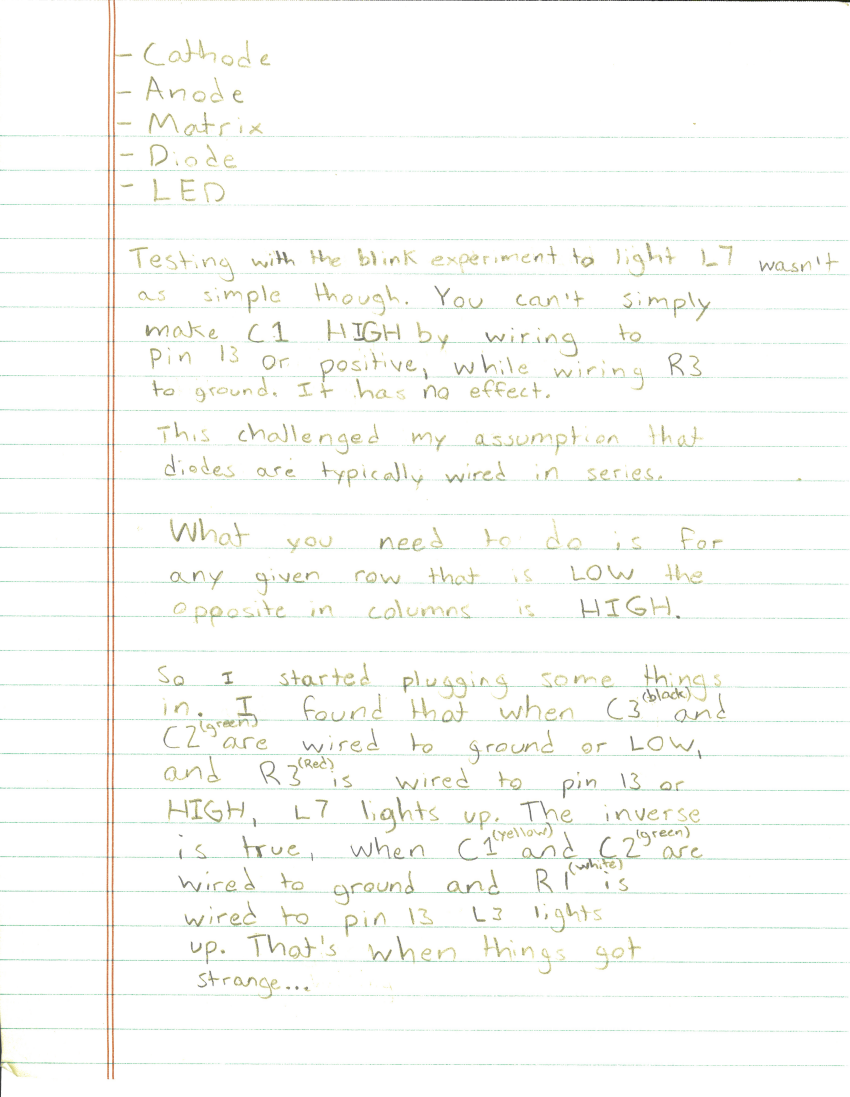 - Cathode
- Anode
- Matrix
- Diode
- LED
Testing with the blink experiment to light L7 wasn't
as simple though. You can't simply
make C1 HIGH by wiring to
pin 13 or positive, while wiring R3
to ground. It has no effect.
This challenged my assumption that
diodes are typically wired in series.
What you need to do is for
any given row that is LOW the
opposite in columns is HIGH.
So I started plugging some things
in. I found that when C3 (black) and
C2 (green) are wired to ground or LOW,
and R3 (Red) is wired to pin 13 or
HIGH, L7 lights up. The inverse
is true, when C1 (yellow) and C2 (green) are
wired to ground and R1 (white) is
wired to pin 13 L3 lights
up. That's when things got
strange...